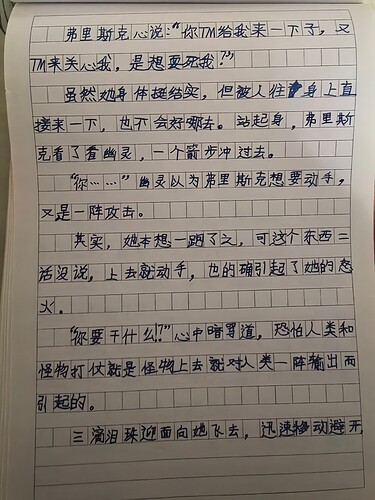 弗里斯克心说:“你TM给我来一下子,又
TM来关心我,是想耍死我?”
虽然她身体挺结实,但被人往身上直
接来一下,也不会好哪去。站起身,弗里斯
克看了看幽灵,一个箭步冲过去。
“你……”幽灵以为弗里斯克想要动手,
又是一阵攻击。
其实,她本想一跑了之,可这个东西二
话没说,上去就动手,也的确引起了她的怒
火。
“你要干什么!?”心中暗骂道,恐怕人类和
怪物打仗就是怪物上去就对人类一阵输出而
引起的。
三滴泪珠迎面向她飞去,迅速移动避开